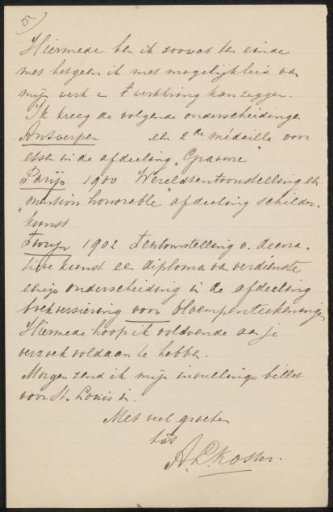 5)
Hiermede ben ik zoowat ten einde
met hetgeen ik met mogelijkheid van
mijn werk en verkrking kan zeggen.
Ik kreeg de volgende onderscheidingen
Antwerpen een 2de médaille voor
etsen in de afdeeling "Gravure"
Parijs 1900 Wereldtentoonstelling een
"mention honorable" afdeeling schilder-
kunst
Turijn 1902 Tentoonstelling v. decora-
tieve kunst een diploma van verdienste
eenige onderscheiding in de afdeeling
boekversiering voor bloempenteekeningen
Hiermede hoop ik voldoende aan je
verzoek voldaan te hebben.
Morgen zend ik mijn invullings billet
voor St. Louis in.
Met veel groeten
A. L. Koster.